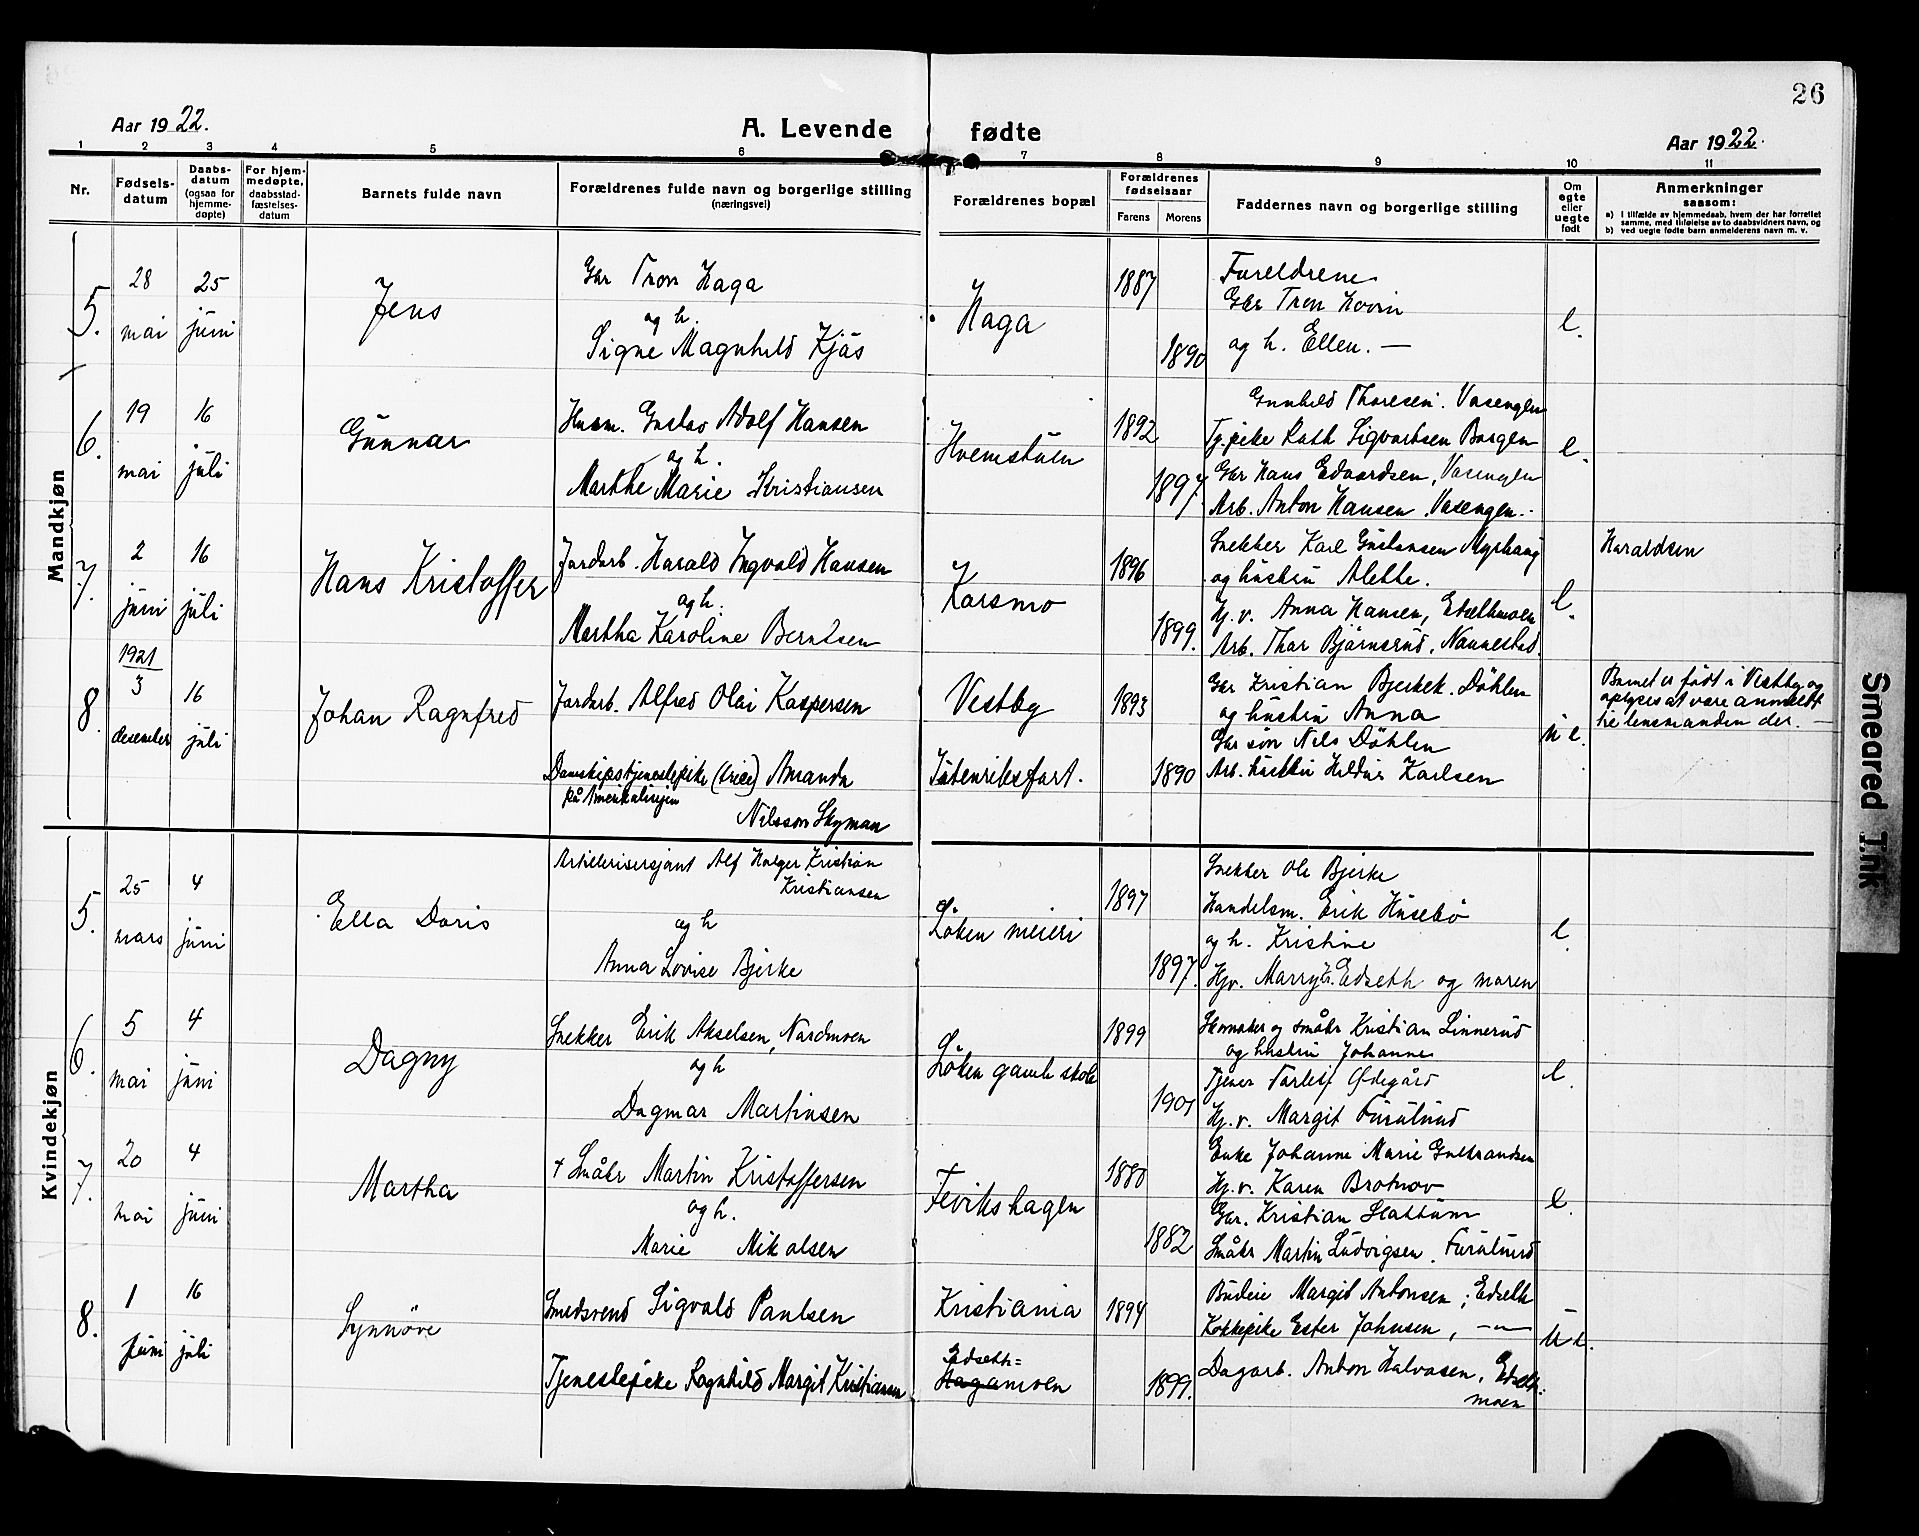 26
Aar 1922.
A. Levende fødte
Aar 1922.
1 2 3 4 5 6 7 8 9 10 11
Nr.
Fødsels-datum
Daabs-datum (ogsaa for hjemme-døpte)
For hjem-medøpte, daabsstad-fæstelses-datum
Barnets fulde navn
Forældrenes fulde navn og borgerlige stilling (næringsvei)
Forældrenes bopæl
Forældrenes fødselsaar
Farens Morens
Faddernes navn og borgerlige stilling
Om egte eller uegte født
Anmerkninger saasom:
a) I tilfælde av hjemmedaab, hvem der har forrettet samme, med tilføielse av to daabsvidners navn, og
b) ved uegte fødte barn anmelderens navn m. v.
Mandkjøn
5.
28 mai
25 juni
Jens
Gbr Tron Haga
og h.
Signe Magnhild Kjös
Haga
1887
1890
Foreldrene
Gbr Tron Hovin
og h. Ellen. —
e.
6.
19 mai
16 juli
Gunnar
Husm. Gustav Adolf Hansen
og h.
Marthe Marie Kristiansen
Hvemstuen
1892
1897.
Gunhild Thoresen. Vasengen
Tj.pike Ruth Sigvartsen Borgen
Gbr Hans Edvardsen, Vasengen
Arb. Anton Hansen. Vasengen.
e.
7.
2 juni
16 juli
Hans Kristoffer
Jordarb. Harald Ingvald Hansen
og h.
Martha Karoline Berntsen
Korsmo
1896
1899.
Snekker Karl Gustavsen Myrhaug
og hustru Alette.
Hj. v. Anna Hansen, Edsethmoen
Arb. Thor Björnsrud, Nannestad.
e.
Haraldsen
8.
1921
3 desember
16 juli
Johan Ragnfred
Jordarb. Alfred Olai Kaspersen
Dampskipstjenestepike (trice) Amanda
på Amerikalinjen
Nilsson Skyman
Vestby
Utenriksfart.
1893
1890
Gbr Kristian Bjerkek. Döhlen
og hustru Anna
Gbr søn Nils Döhlen
Arb. hustru Hildur Karlsen
u e.
Barnet er født i Vestby og
oplyses at være anmeldt
til lensmanden der. —
Kvindekjøn
5.
25 mars
4 juni
Ella Doris
Artillerisersjant Alf Holger Kristian
Kristiansen
og h
Anna Lovise Bjerke
Löken meieri
1897
1897.
Snekker Ole Bjerke
Handelsm. Erik Husebö
og h. Kristine
Hjv. Marry K. Edseth og moren
e.
6.
5 mai
4 juni
Dagny
Snekker Erik Akselsen, Nordmoen
og h
Dagmar Martinsen
Löken gamle skole
1899
1901
Skomaker og småbr Kristian Linnerud
og hustru Johanne
Tjener Torleif Ødegård
Hj. v. Margit Furulund
e.
7.
20 mai
4 juni
Martha
+ Småbr Martin Kristoffersen
og h.
Marie Mikalsen
Fevikshagen
1880
1882
Enke Johanne Marie Gulbrandsen
Hj. v. Karen Brotnov
Gbr. Kristian Slattum
Småbr Martin Ludvigsen. Furulund
e.
8.
1 juni
16 juli
Synnöve
Smedsvend Sigvald Paulsen
Tjenestepike Ragnhild Margit Kristiansen
Kristiania
Edseth=
Hagamoen
1894
1899.
Budeie Margit Antonsen, Edseth
Kokkepike Ester Johnsen, —"—
Dagarb. Anton Halvorsen, Edseth-
moen
U e.
Smeared Ink